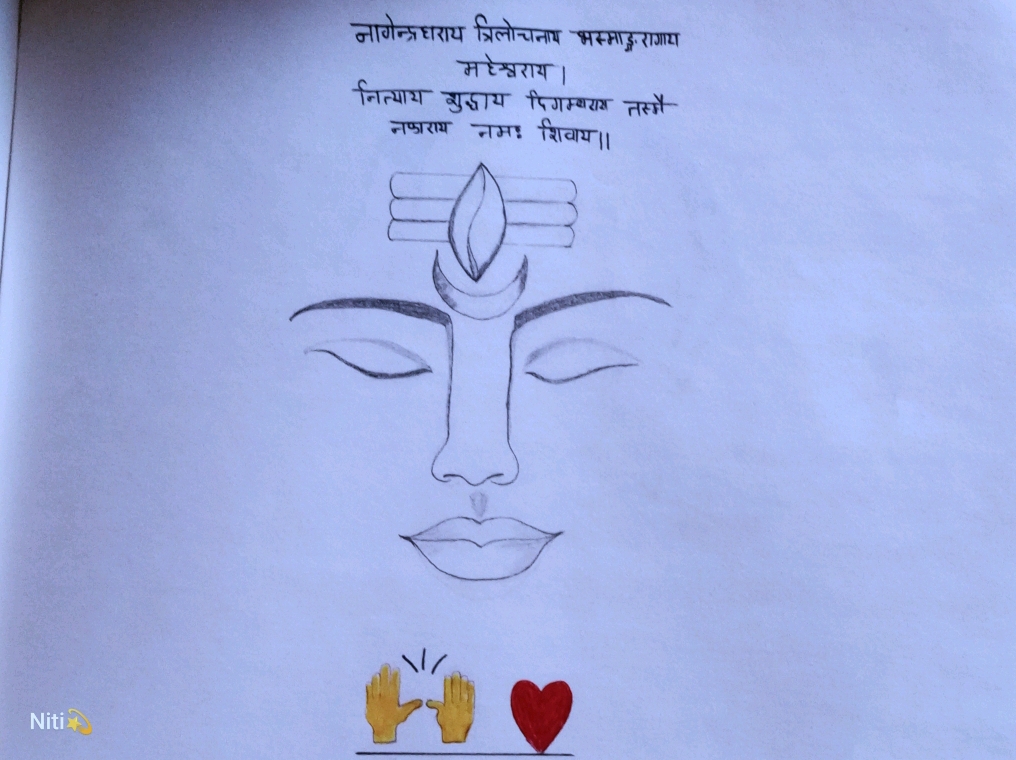 नागेन्द्रहाराय त्रिलोचनाय भस्माङ्गरागाय
महेश्वराय।
नित्याय शुद्धाय दिगम्बराय तस्मै
नकाराय नमः शिवाय॥
Niti